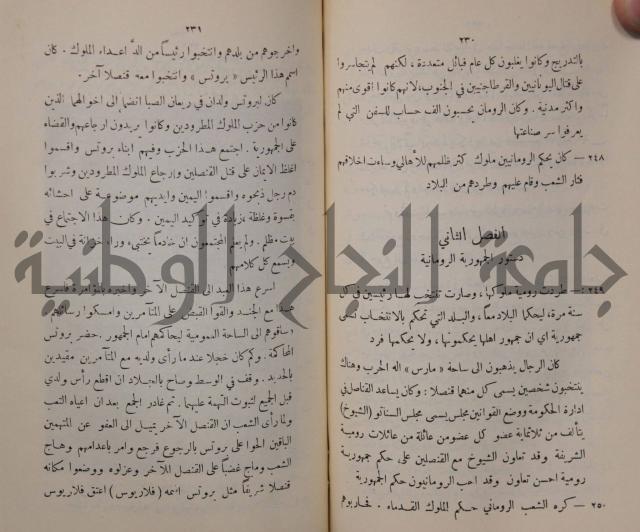 ٢٣٠
بالتدريج وكانوا يغلبون كل عام قبائل متعددة ، لكنهم لم يتجاسروا
على قتال اليونانيين والقرطاجنيين في الجنوب، لانهم كانوا اقوى منهم
واكثر مدنية . وكان الرومان يحسبون الف حساب للسفن التي لم
يعرفوا سر صناعتها
٢٤٨ — كان يحكم الرومانيين ملوك كثر ظلمهم للأهالي وساءت اخلاقهم
فثار الشعب وقام عليهم وطردهم من البلاد
الفصل الثاني
دستور الجمهورية الرومانية
٢٤٩ — طردت رومية ملوكها، وصارت تنتخب لها رئيسين في كل
سنة مرة، ليحكما البلاد معاً، والبلد التي تحكم بالانتخاب تسمى
جمهورية اي ان جمهور اهلها يحكمونها، ولا يحكمها فرد
كان الرجال يذهبون الى ساحة «مارس» اله الحرب وهناك
ينتخبون شخصين يسمى كل منهما قنصلا : وكان يساعد القناصل في
ادارة الحكومة ووضع القوانين مجلس يسمى مجلس السناتو (الشيوخ)
يتألف من ثلثماية عضو كل عضو من عائلة من عائلات رومية
الشريفة وقد تعاون الشيوخ مع القنصلين على حكم جمهورية
رومية احسن تعاون وقد احب الرومانيون حكم الجمهورية
٢٥٠ — كره الشعب الروماني حكم الملوك القدماء . فحاربوهم
٢٣١
واخرجوهم من بلدهم وانتخبوا رئيساً من الدّ اعداء الملوك . كان
اسم هذا الرئيس « بروتس » وانتخبوا معه قنصلا آخر .
كان لبروتس ولدان في ريعان الصبا انضما الى اخوالهما الذين
كانوا من حزب الملوك المطرودين وكانوا يريدون ارجاعهم والقضاء
على الجمهورية . اجتمع هذا الحزب وفيهم ابناء بروتس واقسموا
اغلظ الايمان على قتل القنصلين وارجاع الملوك المطرودين وشربوا
دم رجل ذبحوه واقسموا اليمين وايديهم موضوعة على احشائه
بقسوة وغلظة زيادة في توكيد اليمين . وكان هذا الاجتماع في
بيت مظلم . ولم يعلم المجتمعون ان خادماً يختبىء وراء خزانة في البيت
ويسمع كل كلامهم
اسرع هذا العبد الى القنصل الآخر واخبره بالمؤامرة فاسرع
هذا مع الجند والقوا القبض على المتآمرين وامسكوا رسائلهم
وساقوهم الى الساحة العمومية ليحاكمهم امام الجمهور . حضر بروتس
المحاكمة . وكم كان خجلا عند ما رأى ولديه مع المتآمرين مقيدين
بالحديد . وقف في الوسط وصاح بالجلاد ان اقطع رأس ولدي
قبل الجميع لثبوت التهمة عليهما . ثم غادر الجمع بعد ان اعياه التعب
ولما رأى الشعب ان القنصل الآخر يميل الى العفو عن المتهمين
الباقين الحوا على بروتس بالرجوع فرجع وامر باعدامهم وهاج
الشعب وماج غضباً على القنصل الآخر وعزلوه ووضعوا مكانه
قنصلا شريفاً مثل بروتس اسمه (فلاريوس) اعتق فلاريوس
جامعة النجاح الوطنية